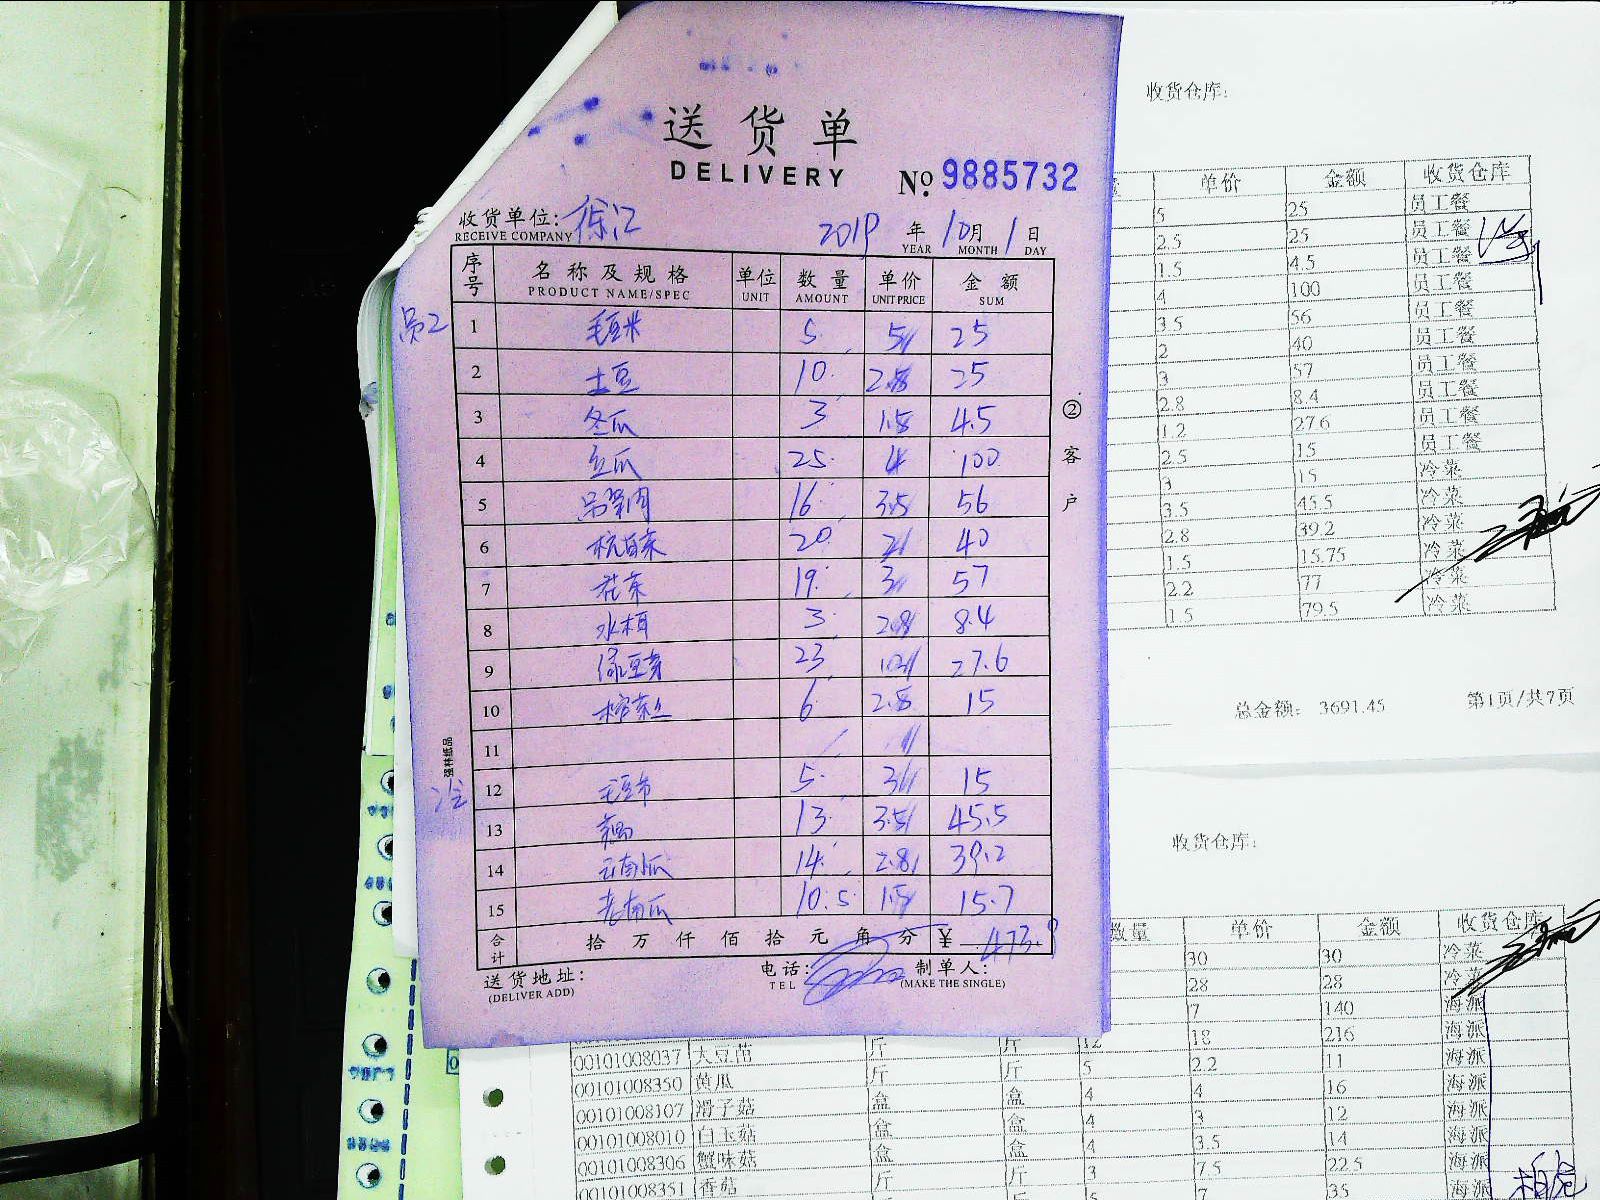 送货单
DELIVERY
№ 9885732
收货单位: 徐汇 2019 年 10 月 1 日
RECEIVE COMPANY YEAR MONTH DAY
序号 名称及规格 单位 数量 单价 金额
PRODUCT NAME/SPEC UNIT AMOUNT UNIT PRICE SUM
员工 1 毛豆米 5 5 25
2 土豆 10 2.5 25
3 冬瓜 3 1.5 4.5
4 瓜 25 4 100
5 16 3.5 56
6 杭白菜 20 2 40
7 花菜 19 3 57
8 水 3 2.8 8.4
9 绿豆芽 23 27.6
10 榨菜丝 6 2.5 15
11
冷 12 毛豆节 5 3 15
13 藕 13 3.5 45.5
14 云南小瓜 14 2.8 39.2
15 老南瓜 10.5 1.5 15.7
合计 拾 万 仟 佰 拾 元 角 分 ¥ 473.9
送货地址: 电话: 制单人:
(DELIVER ADD) TEL (MAKE THE SINGLE)
②客户
强林纸品
收货仓库:
单价 金额 收货仓库
5 25 员工餐
2.5 25 员工餐
1.5 4.5 员工餐
4 100 员工餐
3.5 56 员工餐
2 40 员工餐
3 57 员工餐
2.8 8.4 员工餐
1.2 27.6 员工餐
2.5 15 员工餐
3 15 冷菜
3.5 45.5 冷菜
2.8 39.2 冷菜
1.5 15.75 冷菜
2.2 77 冷菜
1.5 79.5 冷菜
总金额: 3691.45 第1页/共7页
收货仓库:
数量 单价 金额 收货仓库
30 30 冷菜
28 28 冷菜
7 140 海派
12 18 216 海派
00101008037 大豆苗 斤 斤 5 2.2 11 海派
00101008350 黄瓜 斤 斤 4 4 16 海派
00101008107 滑子菇 盒 盒 4 3 12 海派
00101008010 白玉菇 盒 盒 4 3.5 14 海派
00101008306 蟹味菇 盒 盒 3 7.5 22.5 海派
00101008351 香菇 斤 斤 5 7 35 海派